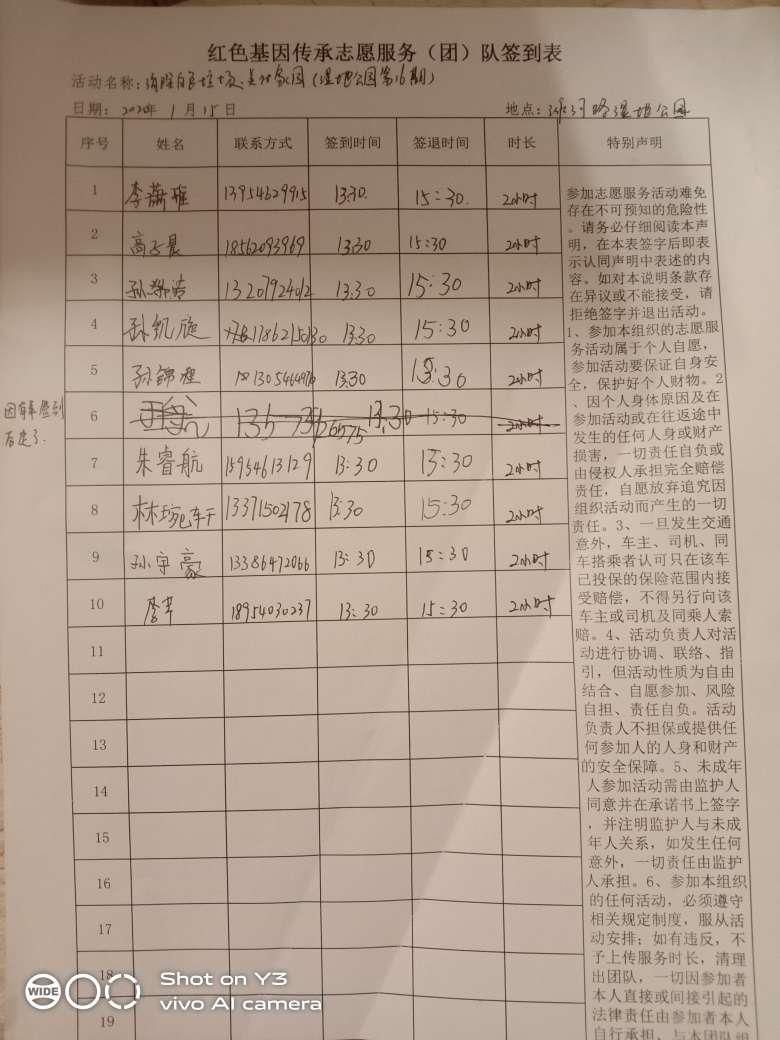 红色基因传承志愿服务（团）队签到表
活动名称：清除白色垃圾、美化家园（湿地公园第16期）
日期：2020年1月15日 地点：路湿地公园
序号 姓名 联系方式 签到时间 签退时间 时长 特别声明
1 李 雅 13954629915 13:30. 15:30. 2小时
2 高子晨 18562093969 13:30 15:30 2小时
3 孙 浩 13207924012 13:30 15:30 2小时
4 孙凯旋 13:30 15:30 2小时
5 孙锦程 13:30 15:30 2小时
6 13:30 15:30 2小时
因有事签到
后走了.
7 朱睿航 15954613129 13:30 15:30 2小时
8 林 13371502178 13:30 15:30 2小时
9 孙守豪 13386472066 13:30 15:30 2小时
10 18954030237 13:30 15:30 2小时
11
12
13
14
15
16
17
18
19
参加志愿服务活动难免
存在不可预知的危险性
。请务必仔细阅读本声
明，在本表签字后即表
示认同声明中表述的内
容。如对本说明条款存
在异议或不能接受，请
拒绝签字并退出活动。
1、参加本组织的志愿服
务活动属于个人自愿，
参加活动要保证自身安
全，保护好个人财物。2
、因个人身体原因及在
参加活动或在往返途中
发生的任何人身或财产
损害，一切责任自负或
由侵权人承担完全赔偿
责任，自愿放弃追究因
组织活动而产生的一切
责任。3、一旦发生交通
意外，车主、司机、同
车搭乘者认可只在该车
已投保的保险范围内接
受赔偿，不得另行向该
车主或司机及同乘人索
赔。4、活动负责人对活
动进行协调、联络、指
引，但活动性质为自由
结合、自愿参加、风险
自担、责任自负。活动
负责人不担保或提供任
何参加人的人身和财产
的安全保障。5、未成年
人参加活动需由监护人
同意并在承诺书上签字
，并注明监护人与未成
年人关系，如发生任何
意外，一切责任由监护
人承担。6、参加本组织
的任何活动，必须遵守
相关规定制度，服从活
动安排；如有违反，不
予上传服务时长，清理
出团队，一切因参加者
本人直接或间接引起的
法律责任由参加者本人
自行承担，与本团队组
WIDE
Shot on Y3
vivo AI camera